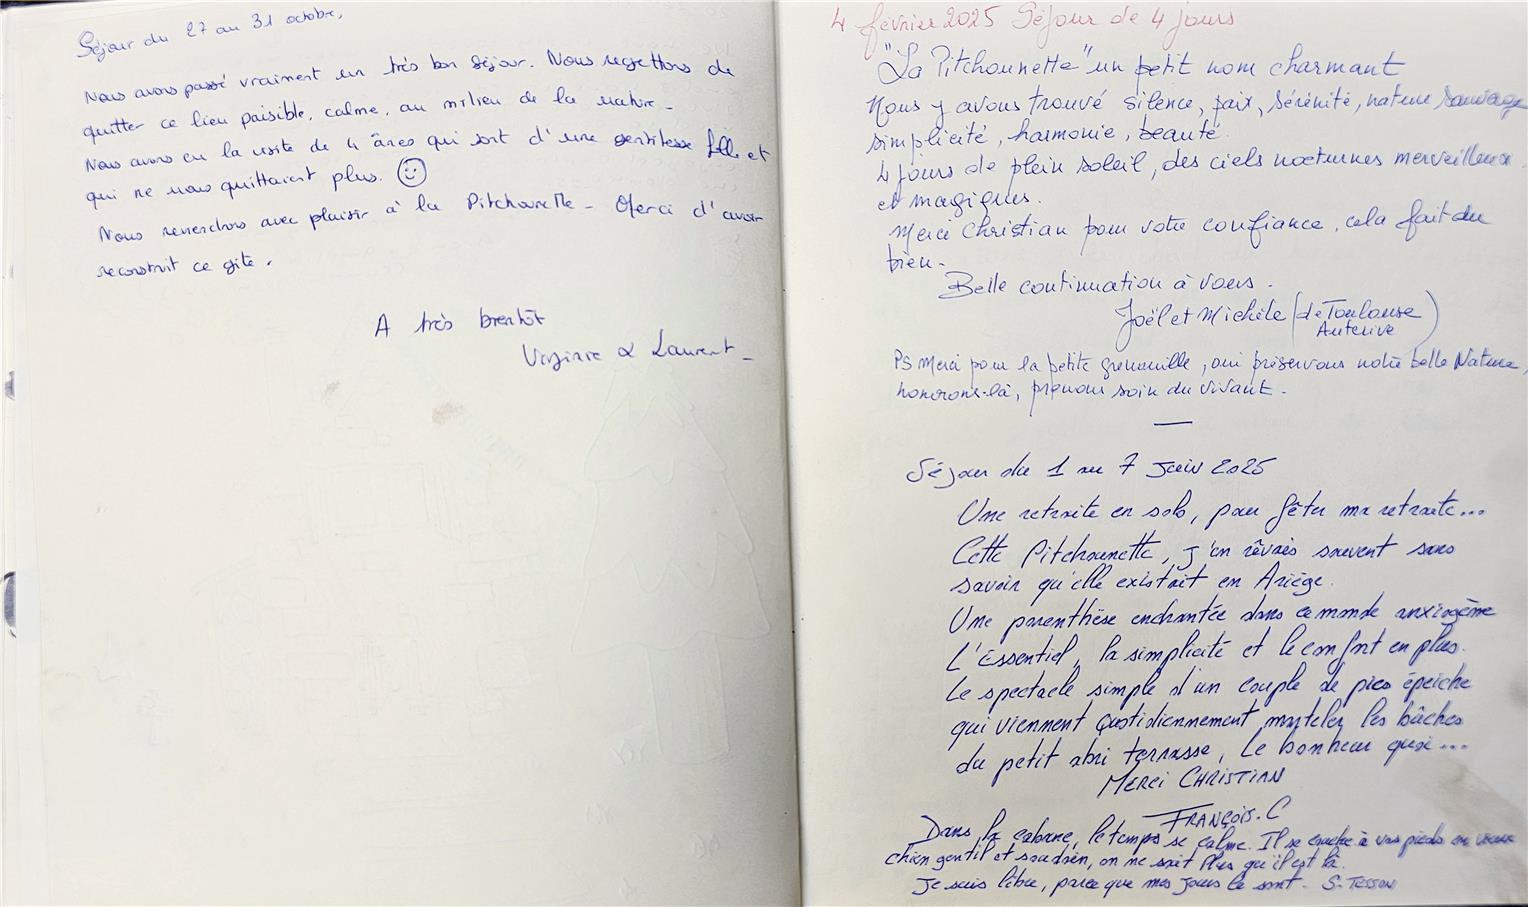 Séjour du 27 au 31 octobre,
Nous avons passé vraiment un très bon séjour. Nous regrettons de
quitter ce lieu paisible, calme, au milieu de la nature -
Nous avons eu la visite de 4 ânes qui sont d'une gentillesse folle et
qui ne nous quittaient plus. ☺
Nous reviendrons avec plaisir à la Pitchounette - Merci d'avoir
reconstruit ce gîte.
A très bientôt
Virginie & Laurent -
4 février 2025 Séjour de 4 jours
"La Pitchounette" un petit nom charmant
Nous y avons trouvé silence, paix, sérénité, nature sauvage
simplicité, harmonie, beauté.
4 jours de plein soleil, des ciels nocturnes merveilleux
et magiques.
Merci Christian pour votre confiance, cela fait du
bien -
Belle continuation à vous.
Joël et Michèle (de Toulouse
Auterive)
PS Merci pour la petite grenouille, oui préservons notre belle Nature,
honorons-là, prenons soin du vivant -
Séjour du 1 au 7 Juin 2025
Une retraite en solo, pour fêter ma retraite...
Cette Pitchounette, j'en rêvais souvent sans
savoir qu'elle existait en Ariège.
Une parenthèse enchantée dans ce monde anxiogène
L'Essentiel, la simplicité et le confort en plus.
Le spectacle simple d'un couple de pics épeiche
qui viennent quotidiennement marteler les bûches
du petit abri terrasse, Le bonheur quoi...
MERCI CHRISTIAN
FRANÇOIS. C
Dans la cabane, le temps se calme. Il se couche à vos pieds en vieux
chien gentil et soudain, on ne sait plus qu'il est là.
Je suis libre, parce que mes jours le sont. S. TESSON